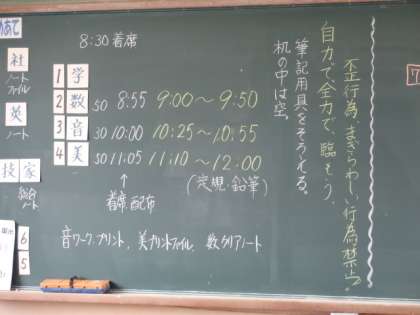 めあて
8:30 着席
1 学
2 数 50 8:55 9:00〜9:50
3 音 30 10:00 10:25〜10:55
4 美 50 11:05 11:10〜12:00
(定規・鉛筆)
↑
着席 配布
音ワーク・プリント、美プリントファイル、数クリアノート
歪行為、まぎらわしい行為禁止。
自力で、全力で、臨もう。
筆記用具をそろえる。
机の中は空。
社
ノート
ファイル
英
ノート
技 家
総合
ノート
6
5
7